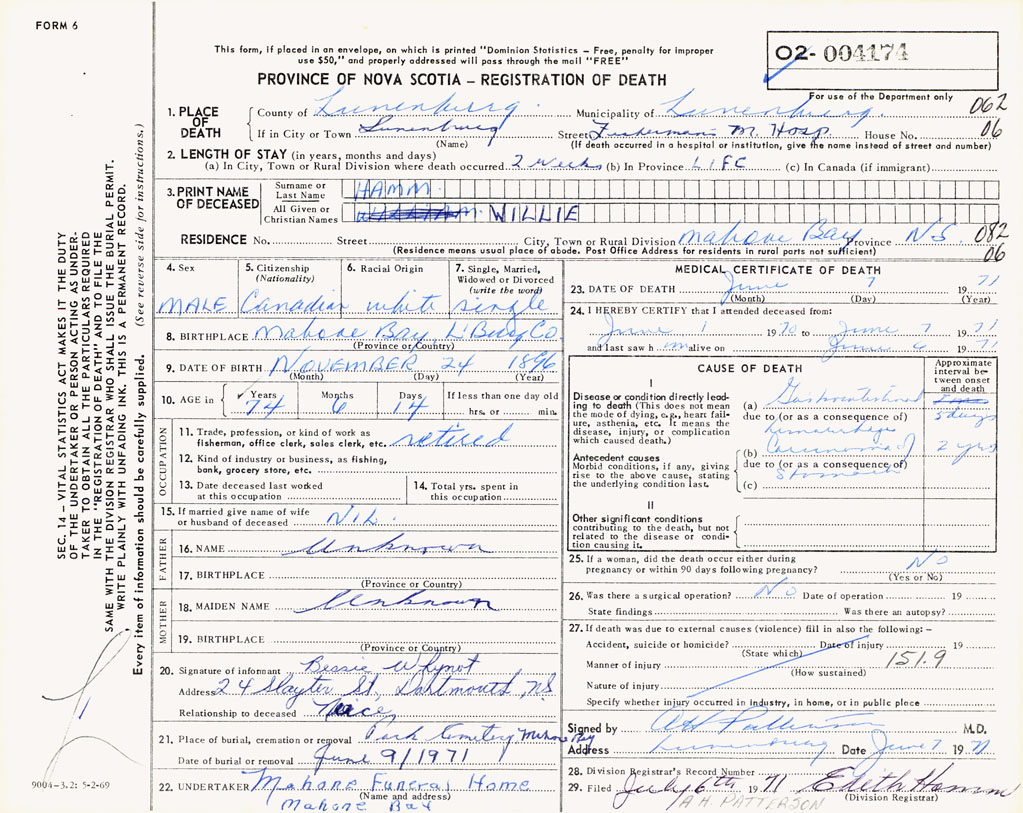 FORM 6
This form, if placed in an envelope, on which is printed "Dominion Statistics – Free, penalty for improper
use $50," and properly addressed will pass through the mail "FREE"
PROVINCE OF NOVA SCOTIA – REGISTRATION OF DEATH
02- 004174
For use of the Department only
062
06
1. PLACE OF DEATH
County of Lunenburg Municipality of Lunenburg
If in City or Town Lunenburg Street Fisherman's M. Hosp. House No.
(Name) (If death occurred in a hospital or institution, give the name instead of street and number)
2. LENGTH OF STAY (in years, months and days)
(a) In City, Town or Rural Division where death occurred 2 weeks (b) In Province LIFE (c) In Canada (if immigrant)
3. PRINT NAME OF DECEASED
Surname or Last Name HAMM
All Given or Christian Names WILLIE
RESIDENCE No. Street City, Town or Rural Division Mahone Bay Province N.S. 082
06
(Residence means usual place of abode. Post Office Address for residents in rural parts not sufficient)
4. Sex 5. Citizenship (Nationality) 6. Racial Origin 7. Single, Married, Widowed or Divorced (write the word)
MALE Canadian white single
8. BIRTHPLACE Mahone Bay, L'Burg Co.
(Province or Country)
9. DATE OF BIRTH NOVEMBER 24 1896
(Month) (Day) (Year)
10. AGE in Years Months Days If less than one day old
74 6 14 hrs. or min.
OCCUPATION
11. Trade, profession, or kind of work as
fisherman, office clerk, sales clerk, etc. retired
12. Kind of industry or business, as fishing,
bank, grocery store, etc.
13. Date deceased last worked
at this occupation
14. Total yrs. spent in
this occupation
15. If married give name of wife
or husband of deceased NIL.
FATHER
16. NAME Unknown
17. BIRTHPLACE
(Province or Country)
MOTHER
18. MAIDEN NAME Unknown
19. BIRTHPLACE
(Province or Country)
20. Signature of informant Bessie Whynot
Address 24 Slayter St, Dartmouth, N.S.
Relationship to deceased Niece
21. Place of burial, cremation or removal Park Cemetery Mahone Bay
Date of burial or removal June 9/1971
22. UNDERTAKER Mahone Funeral Home
(Name and address)
Mahone Bay
MEDICAL CERTIFICATE OF DEATH
23. DATE OF DEATH June 7 1971
(Month) (Day) (Year)
24. I HEREBY CERTIFY that I attended deceased from:
June 1 1970 to June 7 1971
and last saw h m alive on June 6 1971
CAUSE OF DEATH
Approximate interval between onset and death
I
Disease or condition directly leading to death (This does not mean
the mode of dying, e.g., heart failure, asthenia, etc. It means the
disease, injury, or complication
which caused death.)
(a) Gastrointestinal
5 days
due to (or as a consequence of)
hemorrhage
Antecedent causes
Morbid conditions, if any, giving
rise to the above cause, stating
the underlying condition last.
(b) Carcinoma of 2 yrs
due to (or as a consequence of)
Stomach
(c)
II
Other significant conditions
contributing to the death, but not
related to the disease or condition causing it.
25. If a woman, did the death occur either during
pregnancy or within 90 days following pregnancy? No
(Yes or No)
26. Was there a surgical operation? No Date of operation 19
State findings Was there an autopsy?
27. If death was due to external causes (violence) fill in also the following: –
Accident, suicide or homicide? Date of injury 19
(State which)
Manner of injury 151.9
(How sustained)
Nature of injury
Specify whether injury occurred in industry, in home, or in public place
Signed by AH Patterson M.D.
Address Lunenburg Date June 7 1971
28. Division Registrar's Record Number
29. Filed July 6th 1971 Edith Hamm
(Division Registrar)
A.H. PATTERSON
SEC. 14 – VITAL STATISTICS ACT MAKES IT THE DUTY
OF THE UNDERTAKER OR PERSON ACTING AS UNDER-
TAKER TO OBTAIN ALL THE PARTICULARS REQUIRED
IN THE "REGISTRATION OF DEATH" AND TO FILE THE
SAME WITH THE DIVISION REGISTRAR WHO SHALL ISSUE THE BURIAL PERMIT.
WRITE PLAINLY WITH UNFADING INK. THIS IS A PERMANENT RECORD.
Every item of information should be carefully supplied. (See reverse side for instructions.)
1
9004-3.2: 5-2-69